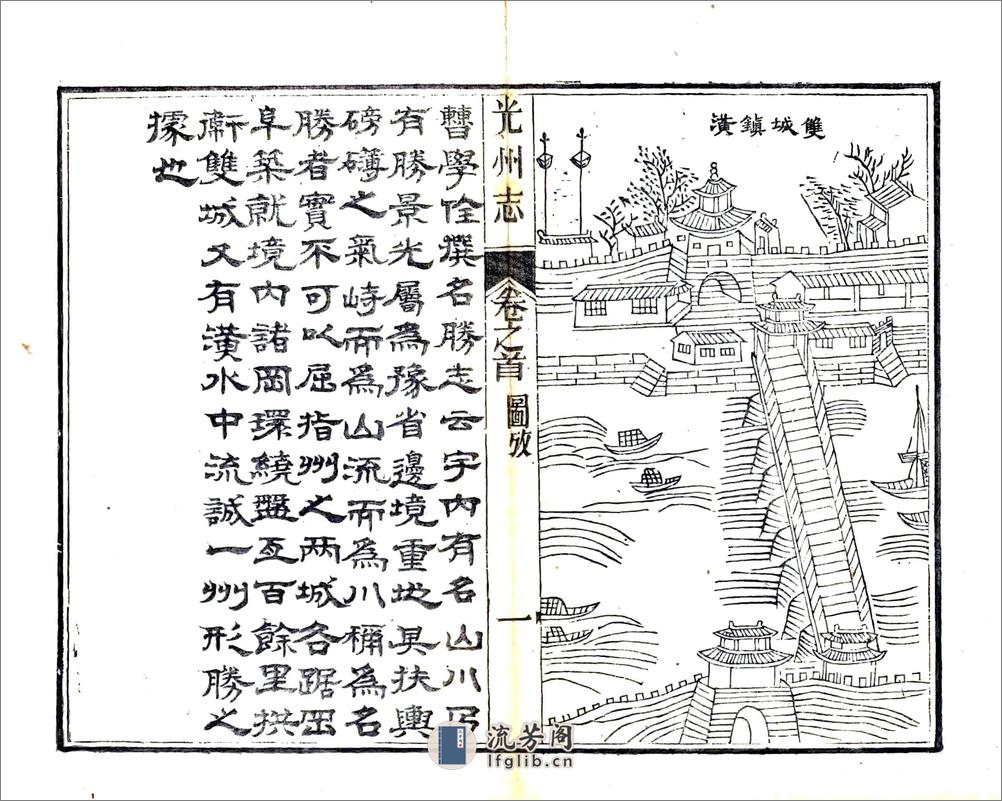 雙城鎮潢
光州志
卷之首
圖攷
一
曹學佺撰名勝志云宇內有名山川乃
有勝景光屬為豫省邊境重地具扶輿
磅礴之氣峙而為山流而為川稱為名
勝者實不可以屈指州之两城各踞岡
阜築就境內諸岡環繞盤亙百餘里拱
衛雙城又有潢水中流誠一州形勝之
據也
流芳阁
lfglib.cn